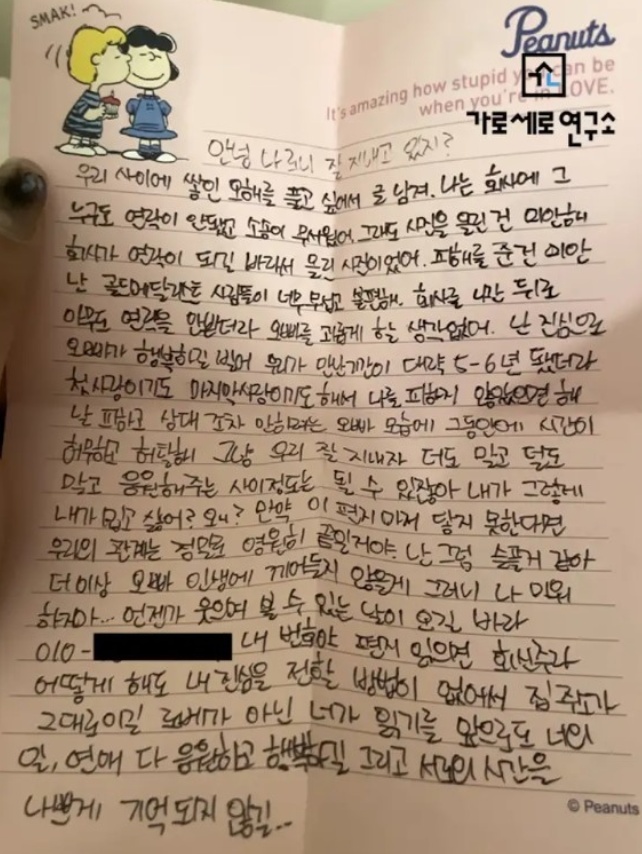 SMAK!
Peanuts
It's amazing how stupid you can be
when you're in LOVE.
가로세로연구소
안녕 나 잘 지내고 있지?
우리 사이에 쌓인 오해를 풀고 싶어서 글 남겨. 나는 회사에 그
누구도 연락이 안됐고 소송이 무서웠어. 그래도 사진을 올린 건 미안해
회사가 연락이 되길 바래서 올린 사진이었어. 피해를 준건 미안
난 골드메달리스트 사람들이 너무 무섭고 불편해. 회사를 나간 뒤로
아무도 연락을 안받더라 오빠를 괴롭게 할 생각없어. 난 진심으로
오빠가 행복하길 빌어 우리가 만난기간이 대략 5-6년 됐더라
첫사랑이기도 마지막사랑이기도 해서 나를 피하지 않았으면 해
날 피하고 상대 조차 안하려는 오빠 모습에 그동안에 시간이
허무하고 허탈해 그냥 우리 잘 지내자 더도 말고 덜도
말고 응원해주는 사이정도는 될 수 있잖아 내가 그렇게
내가 밉고 싫어? 왜? 만약 이 편지마저 닿지 못한다면
우리의 관계는 정말로 영원히 끝일거야. 난 그럼 슬플거 같아
더이상 오빠 인생에 끼어들지 않을게 그러니 나 미워
하지마... 언젠가 웃으며 볼 수 있는 날이 오길 바라
010- 내 번호야 편지 읽으면 회신주라
어떻게 해도 내 진심을 전할 방법이 없어서 집주소가
그대로이길 로베가 아닌 너가 읽기를 앞으로도 너의
일, 연애 다 응원하고 행복하길 그리고 서로의 시간을
나쁘게 기억되지 않길..
© Peanuts